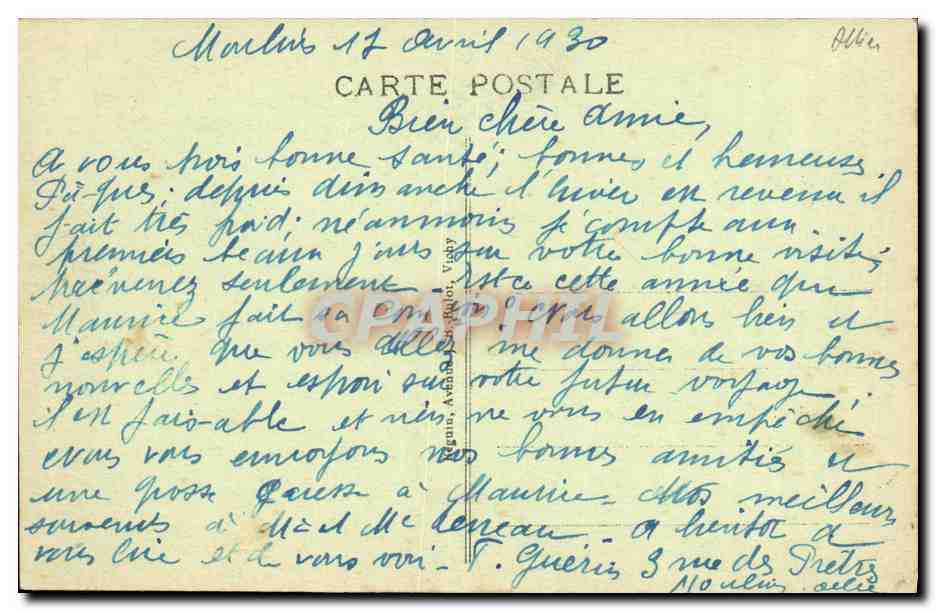 Moulins 17 avril 1930
Allier
CARTE POSTALE
Bien chère Amie,
A vous trois bonne santé; bonnes et heureuses
Pâques; depuis dimanche l'hiver est revenu il
fait très froid; néanmoins je compte aux
premiers beaux jours sur votre bonne visite;
prévenez seulement Est ce cette année que
Maurice fait sa nous allons bien et
j'espère que vous allez me donner de vos bonnes
nouvelles et espoir sur votre futur voyage
il est faisable et rien ne vous en empêche
nous vous envoyons nos bonnes amitiés et
une grosse caresse à Maurice. Mes meilleurs
souvenirs à Mr et Me A bientôt de
vous lire et de vous voir - F. Guérin 3 rue des Prêtres
Moulins Allier
Béguin, Avenue Vichy
CPAPHIL